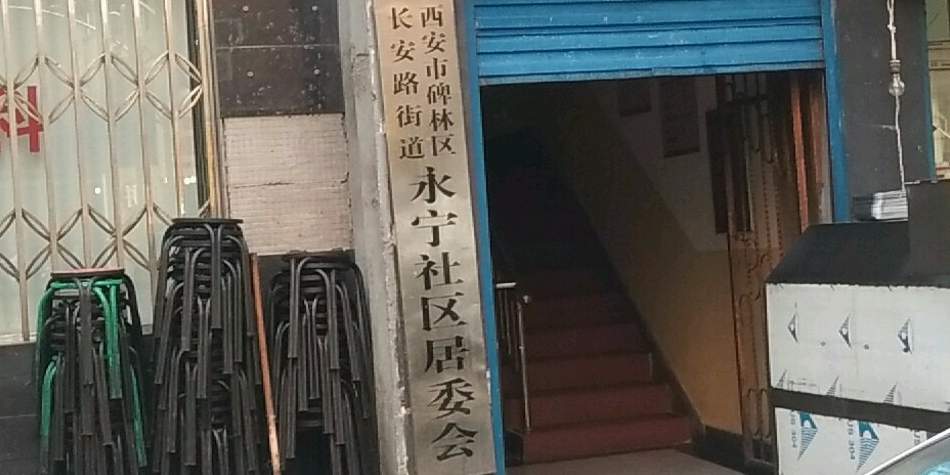 西安市碑林区
长安路街道
永宁社区居委会
科
304
304